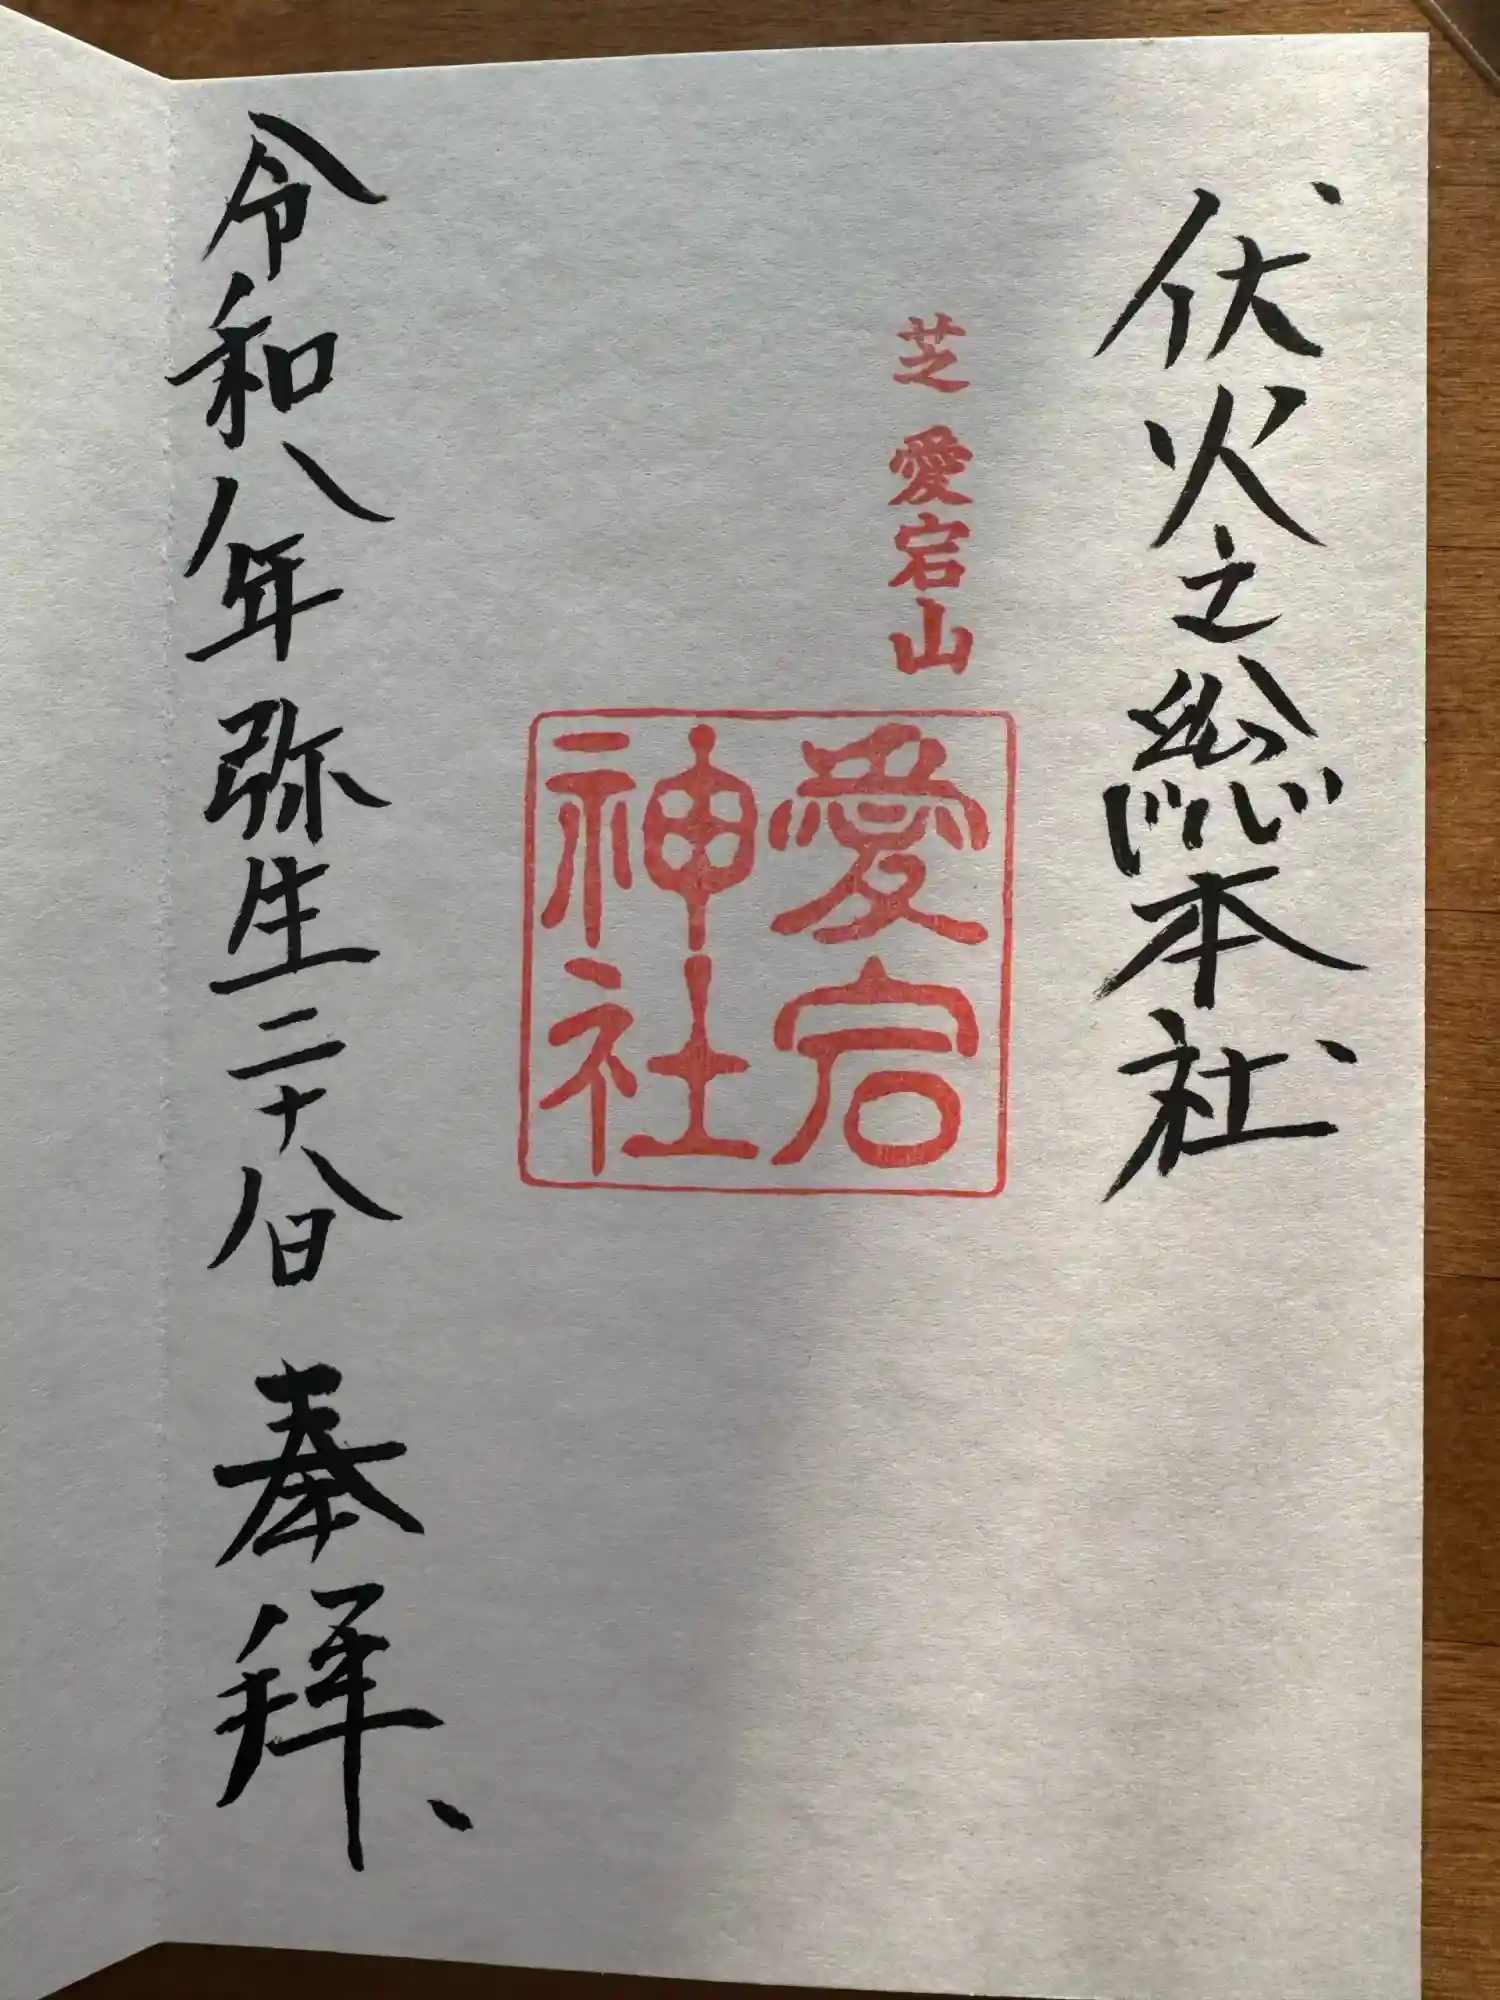 伏火之総本社
芝 愛宕山
愛宕
神社
令和八年弥生二十八日 奉拝